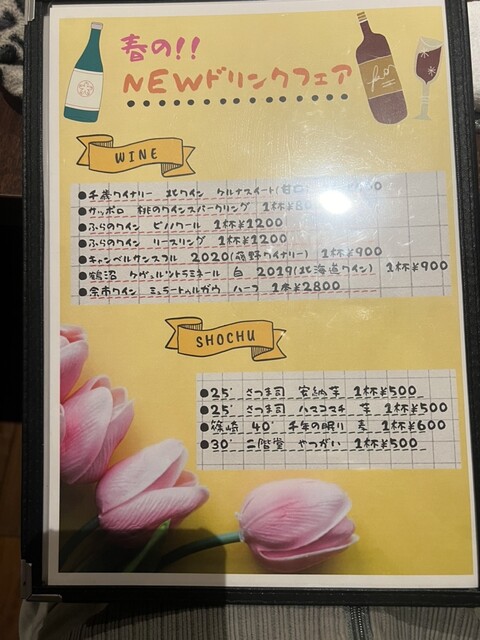 春の!!
NEWドリンクフェア
WINE
●千歳ワイナリー 北ワイン ケルナスイート(甘口)
●サッポロ 桃のワインスパークリング 1杯¥80
●ふらのワイン ピノノワール 1杯¥1200
●ふらのワイン リースリング 1杯¥1200
●キャンベルサンスフル 2020(藤野ワイナリー) 1杯¥900
●鶴沼 ゲヴュルツトラミネール 白 2019(北海道ワイン) 1杯¥900
●余市ワイン ミュラートゥルガウ ハーフ 1本¥2800
SHOCHU
●25° さつま司 安納芋 1杯¥500
●25° さつま司 ハマコマチ 芋 1杯¥500
●篠崎 40° 千年の眠り 麦 1杯¥600
●30° 二階堂 やつがい 1杯¥500